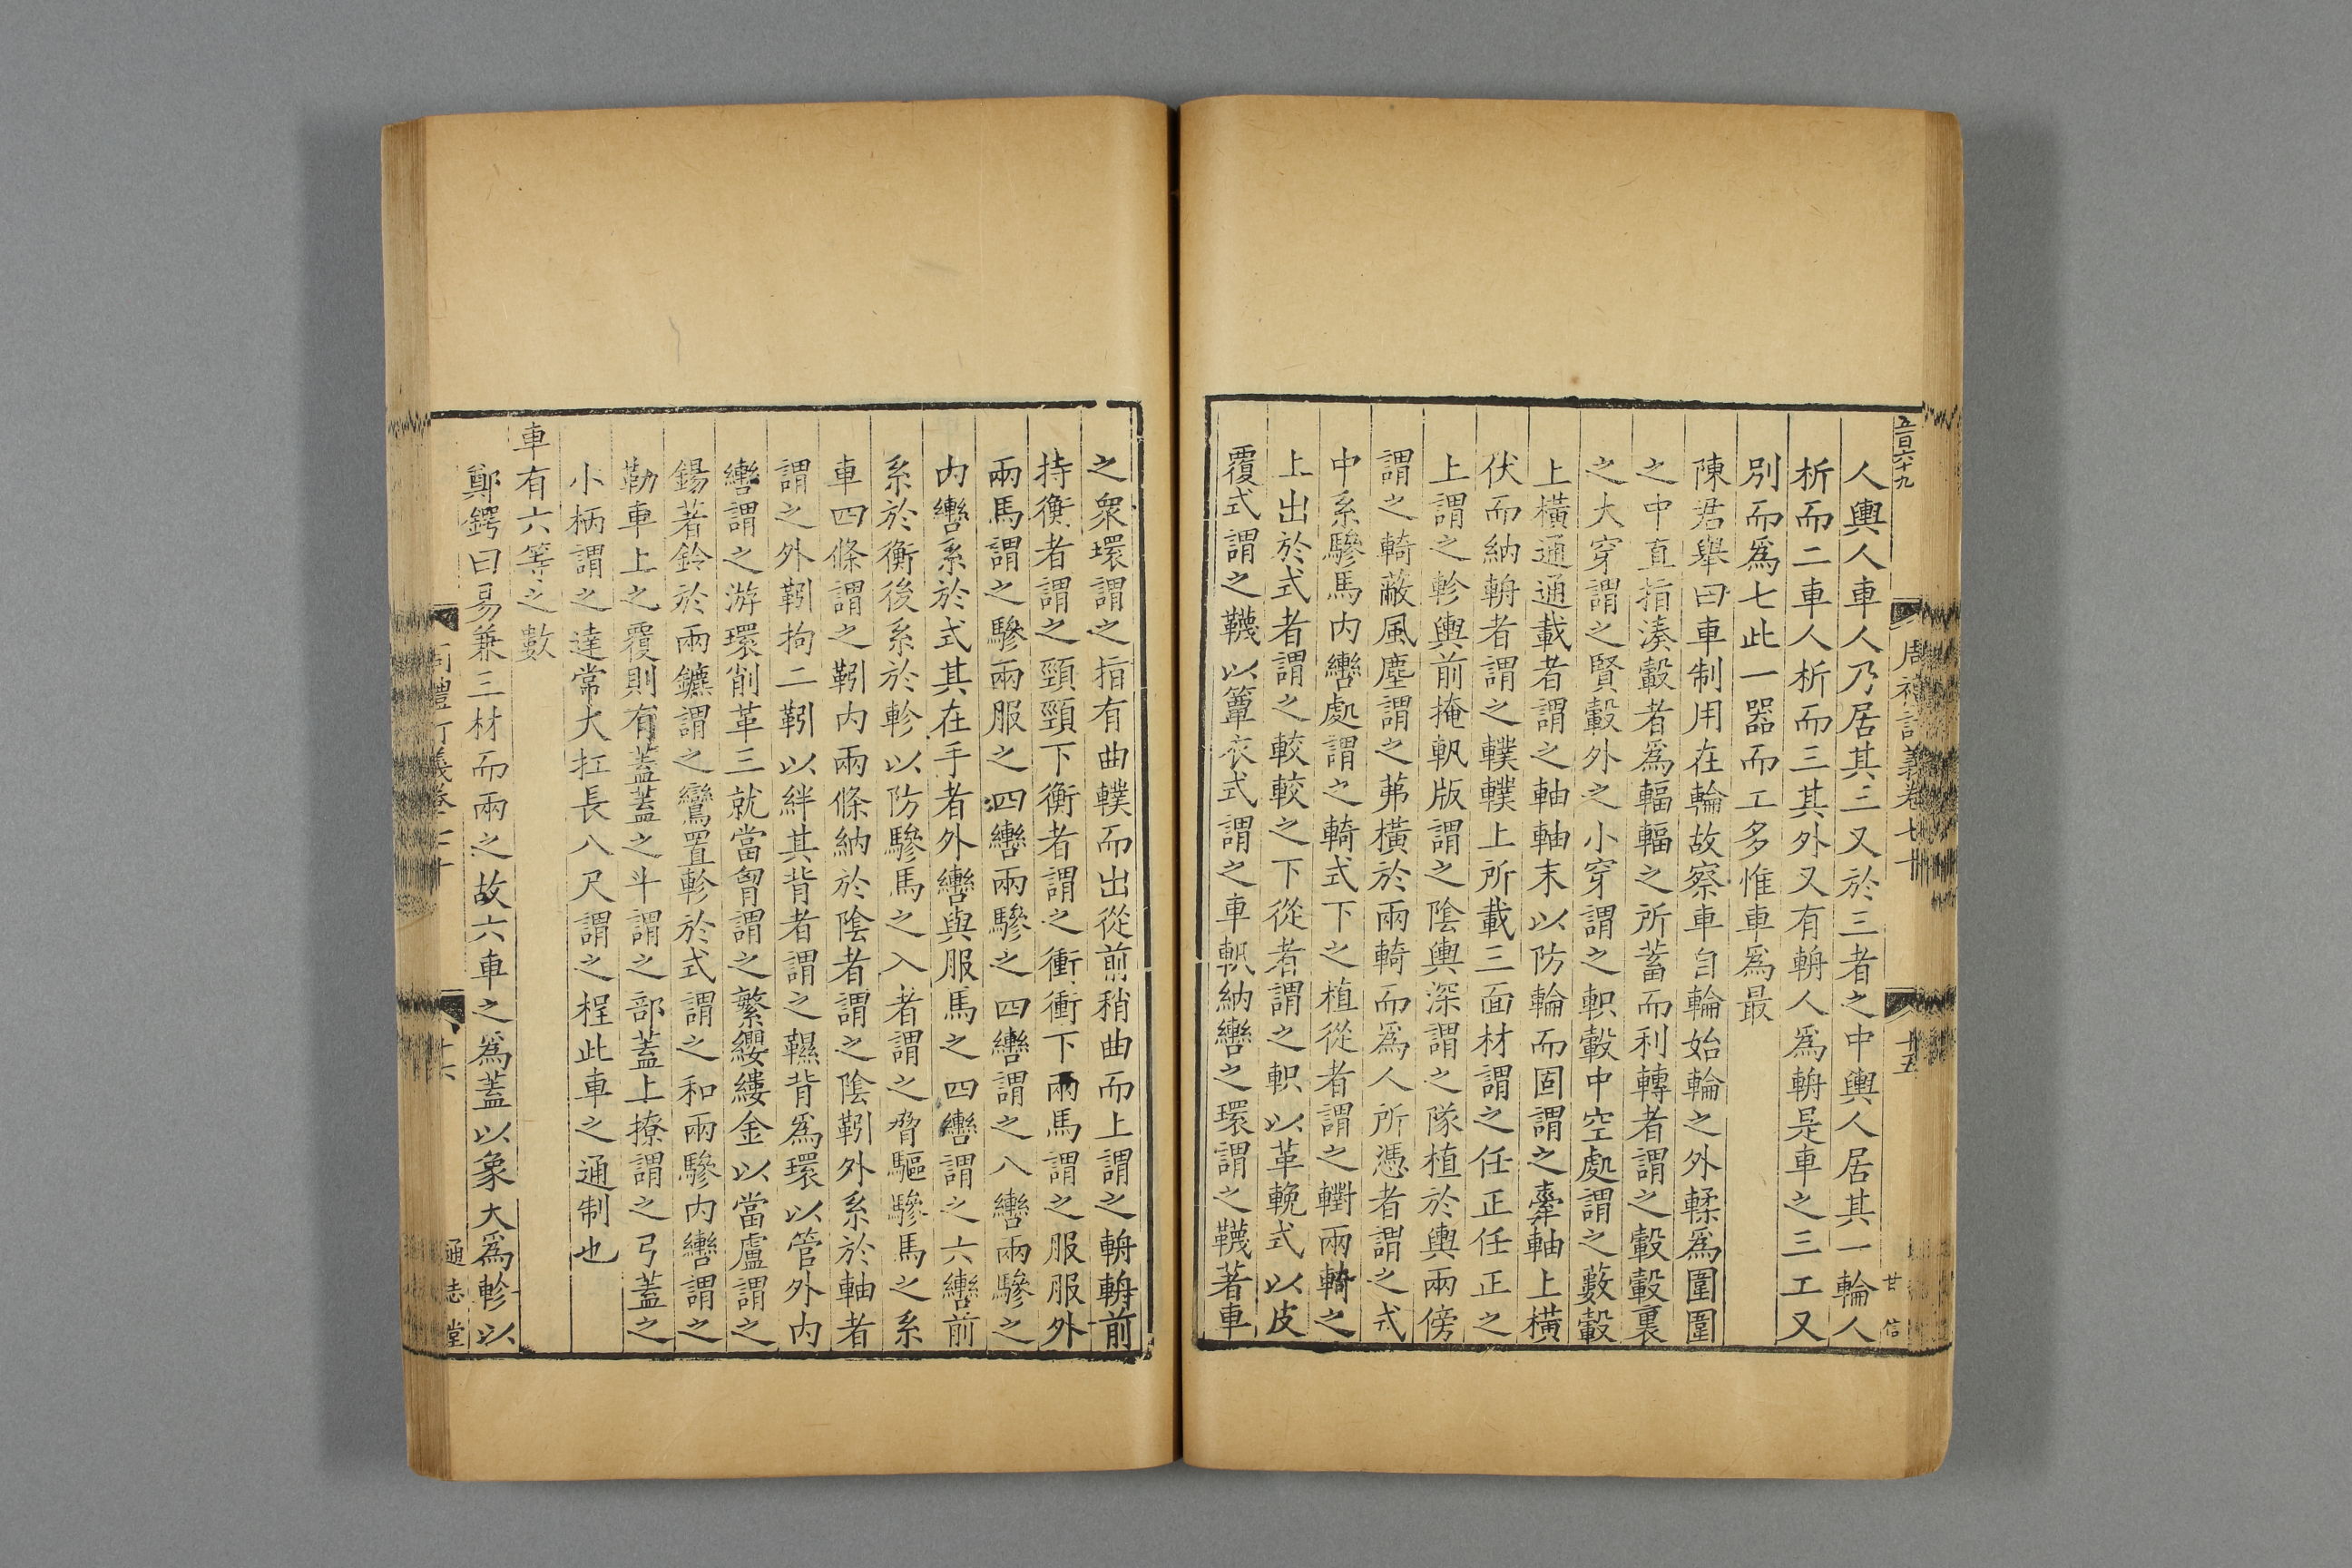 五百六十九
周禮訂義卷七十
十五
甘 信
人輿人車人乃居其三又於三者之中輿人居其一輪人
析而二車人析而三其外又有輈人爲輈是車之三工又
別而爲七此一器而工多惟車爲最
陳君舉曰車制用在輪故察車自輪始輪之外輮爲圍圍
之中直指湊轂者爲輻輻之所蓄而利轉者謂之轂轂裏
之大穿謂之賢轂外之小穿謂之軹轂中空處謂之藪轂
上橫通通載者謂之軸軸末以防輪而固謂之舝軸上橫
伏而納輈者謂之轐轐上所載三面材謂之任正任正之
上謂之軫輿前掩軓版謂之陰輿深謂之隊植於輿兩傍
謂之輢蔽風塵謂之茀橫於兩輢而爲人所憑者謂之式
中系驂馬內轡處謂之輢式下之植從者謂之轛兩輢之
上出於式者謂之較較之下從者謂之軹以革輓式以皮
覆式謂之韤以簟衣式謂之車軓納轡之環謂之韤著車
之衆環謂之捐有曲轐而出從前稍曲而上謂之輈輈前
持衡者謂之頸頸下衡者謂之衝衝下兩馬謂之服服外
兩馬謂之驂兩服之四轡兩驂之四轡謂之八轡兩驂之
內轡系於式其在手者外轡與服馬之四轡謂之六轡前
系於衡後系於軫以防驂馬之入者謂之脅驅驂馬之系
車四條謂之靷內兩條納於陰者謂之陰靷外系於軸者
謂之外靷拘二靷以絆其背者謂之韅背爲環以管外內
轡謂之游環削革三就當胷謂之繁纓縷金以當盧謂之
鍚著鈴於兩鑣謂之鸞置軫於式謂之和兩驂內轡謂之
勒車上之覆則有蓋蓋之斗謂之部蓋上橑謂之弓蓋之
小柄謂之達常大扛長八尺謂之桯此車之通制也
車有六等之數
鄭鍔曰易兼三材而兩之故六車之爲蓋以象大爲軫以
周禮訂義卷七十
十六
通志堂